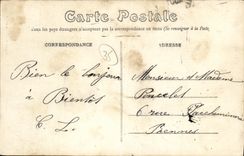 Carte Postale
Tous les pays étrangers n'acceptent pas la correspondance au recto (Se renseigner à la Poste)
CORRESPONDANCE
ADRESSE
35
Bien le bonjour
à Bientôt
C. L.
Monsieur et Madame
Poncelet
6 rue
Rennes